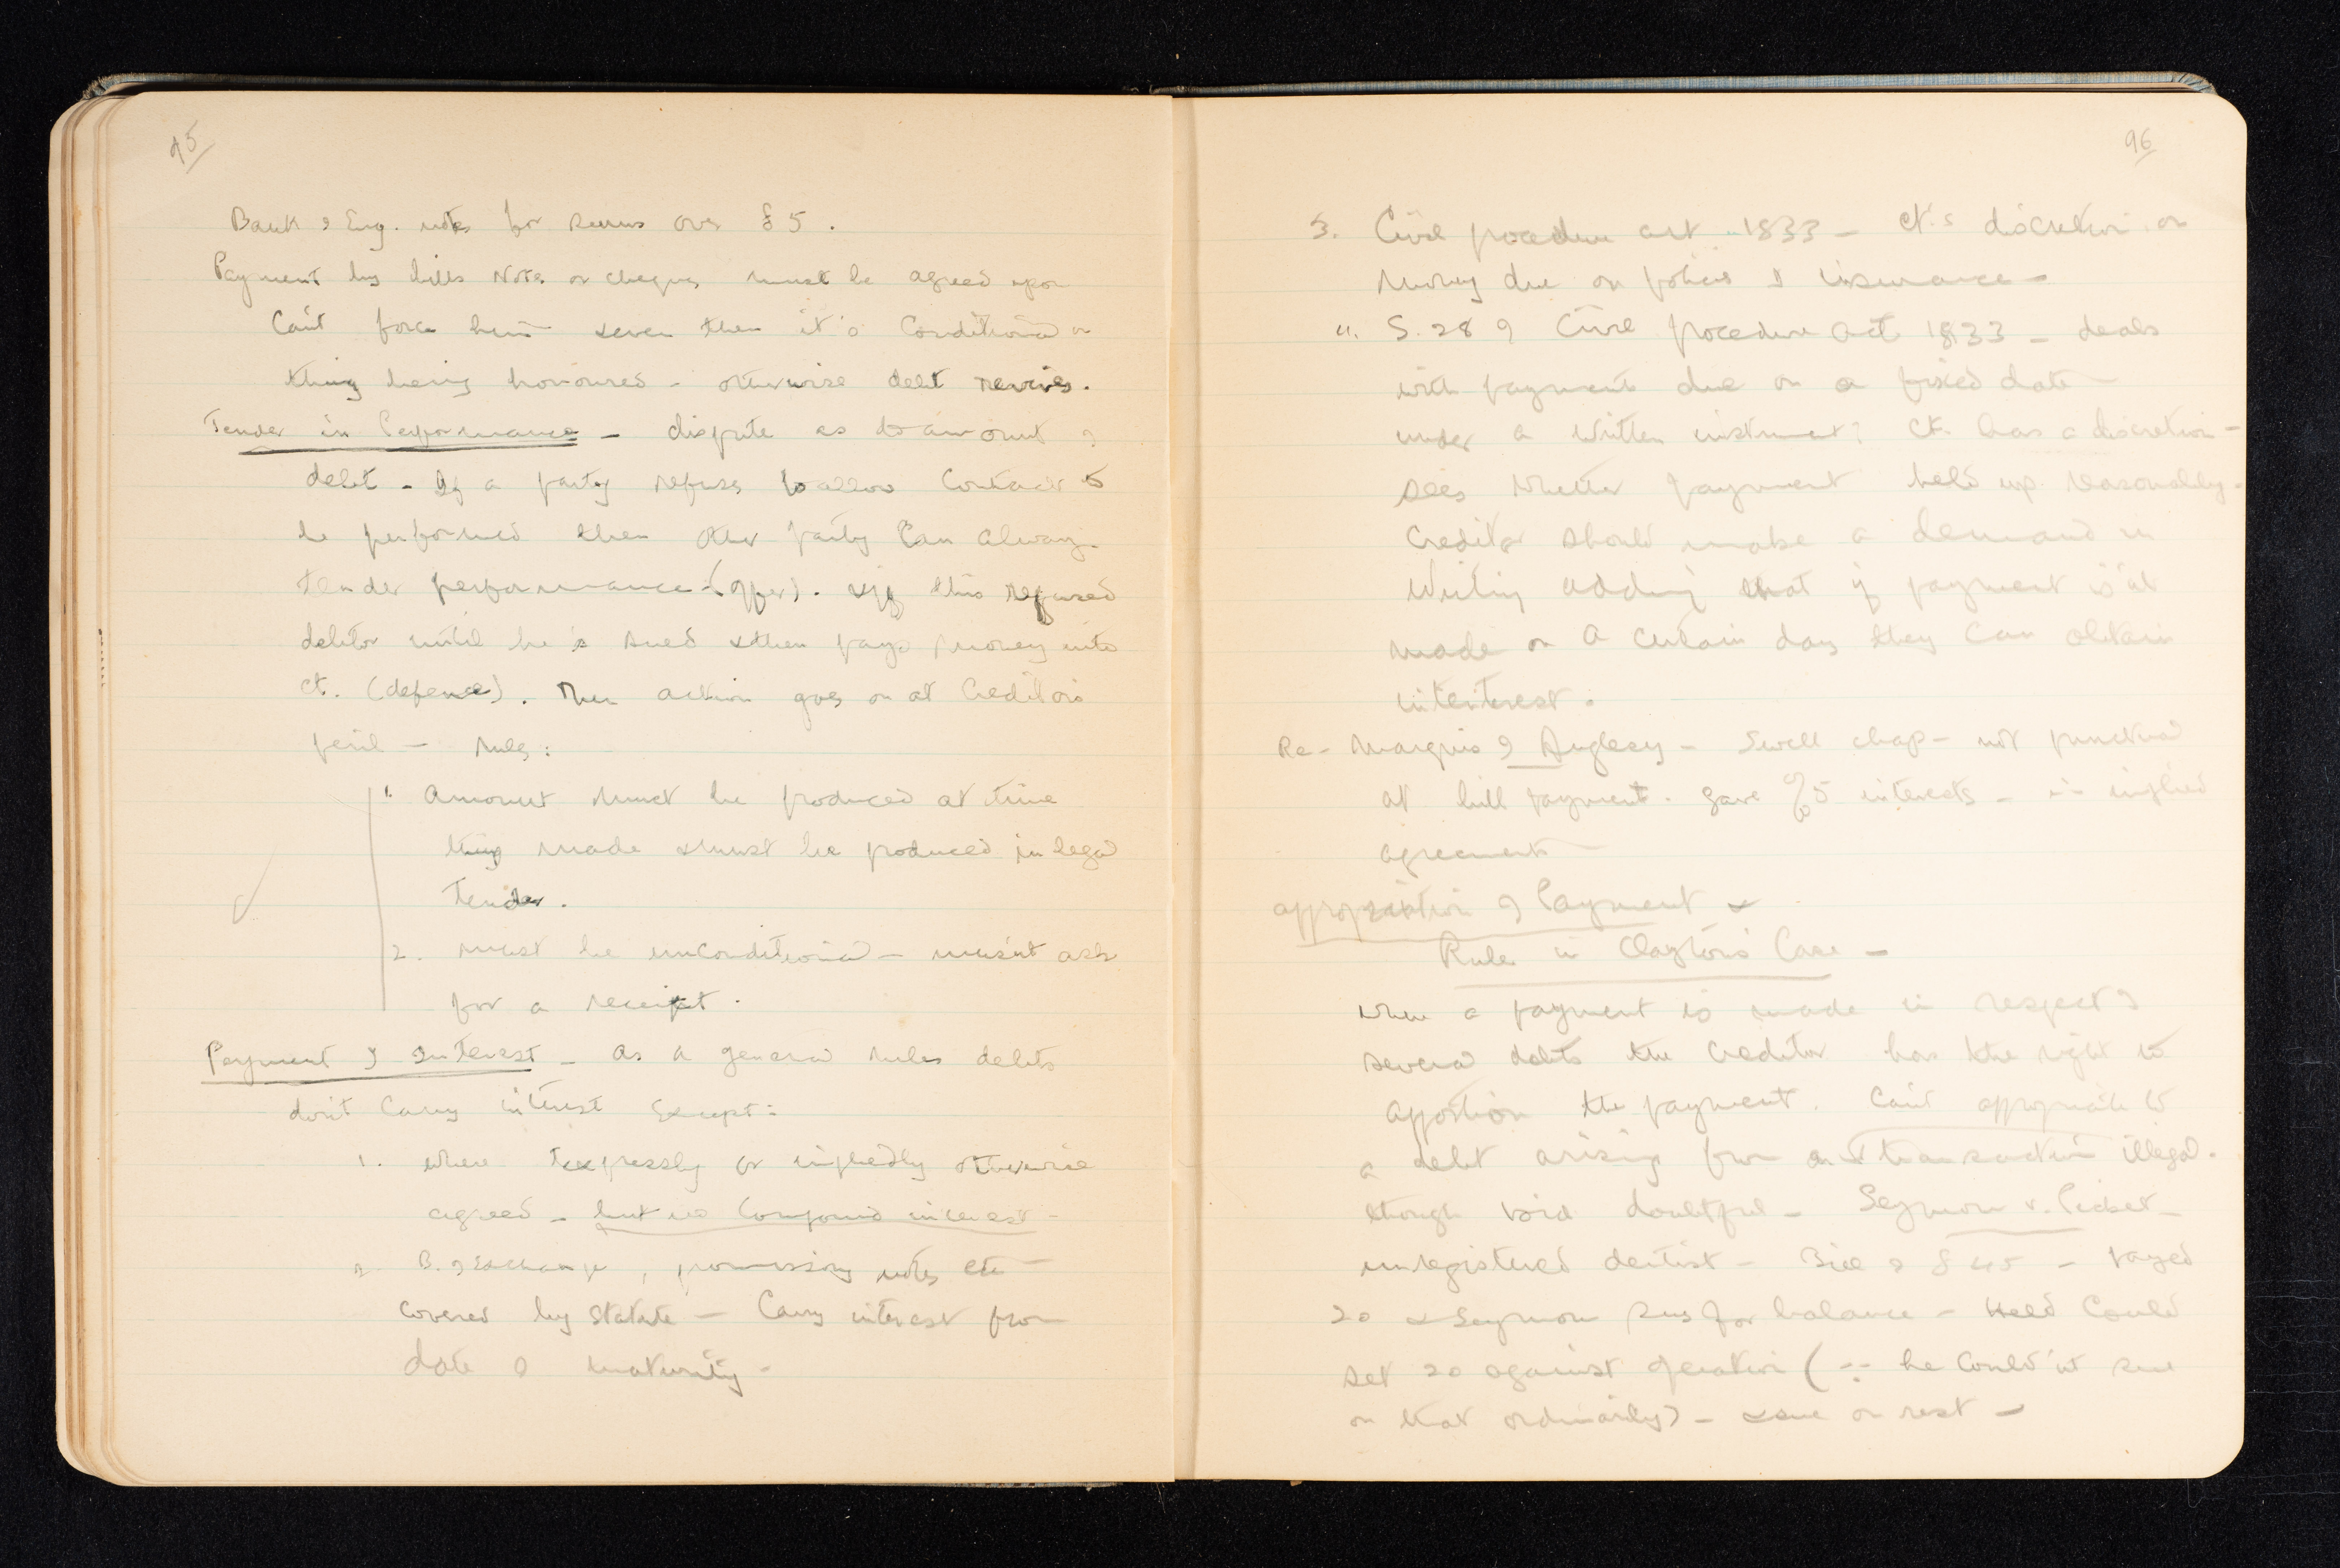 95
Bank of Eng. notes for sums over £5.
Payment by bills Notes or cheques must be agreed upon
Can't force him & even then it's Conditional on
thing being honoured - otherwise debt revives.
Tender in Performance - dispute as to amount of
debt - If a party refuses to allow Contract to
be performed then other party Can always
tender performance (offer). & if this refused
debtor until he is sued & then pays money into
ct. (defence). Then action goes on at Creditors
peril - rules:
1. Amount must be produced at time
thing made & must be produced in legal
Tender.
2. must be unconditional - musn't ask
for a receipt.
Payment of Interest - As a general rules debts
don't Carry interest Except:
1. where expressly or impliedly otherwise
agreed - but no Compound interest -
2. B. of Exchange, promissory notes etc
covered by Statute - Carry interest from
date of maturity -
96
3. Civil procedure act 1833 - Ct's discretion on
Money due on policies of insurance -
4. S. 28 of Civil procedure Act 1833 - deals
with payments due on a fixed date
under a written instrument: Ct. has a discretion -
sees whether payment held up reasonably -
Creditor should make a demand in
Writing adding that if payment is'nt
made on A certain day they can obtain
interterest.
Re - Marquis of Anglesey - Swell chap - not punctual
at bill payment. Gave % 5 interests - in implied
agreement -
appropriation of Payment &
Rule in Clayton's Case -
when a payment is made in respect of
several debts the Creditor has the right to
Apportion the payment. Can't appropriate to
a debt arising from an transaction illegal.
though void doubtful - Seymour v. Picket -
unregistered dentist - Bill of £45 - payed
20 & Seymour sues for balance - Held Could
set 20 against operation (∵ he Could'nt sue
on that ordinarily) - & sue on rest -